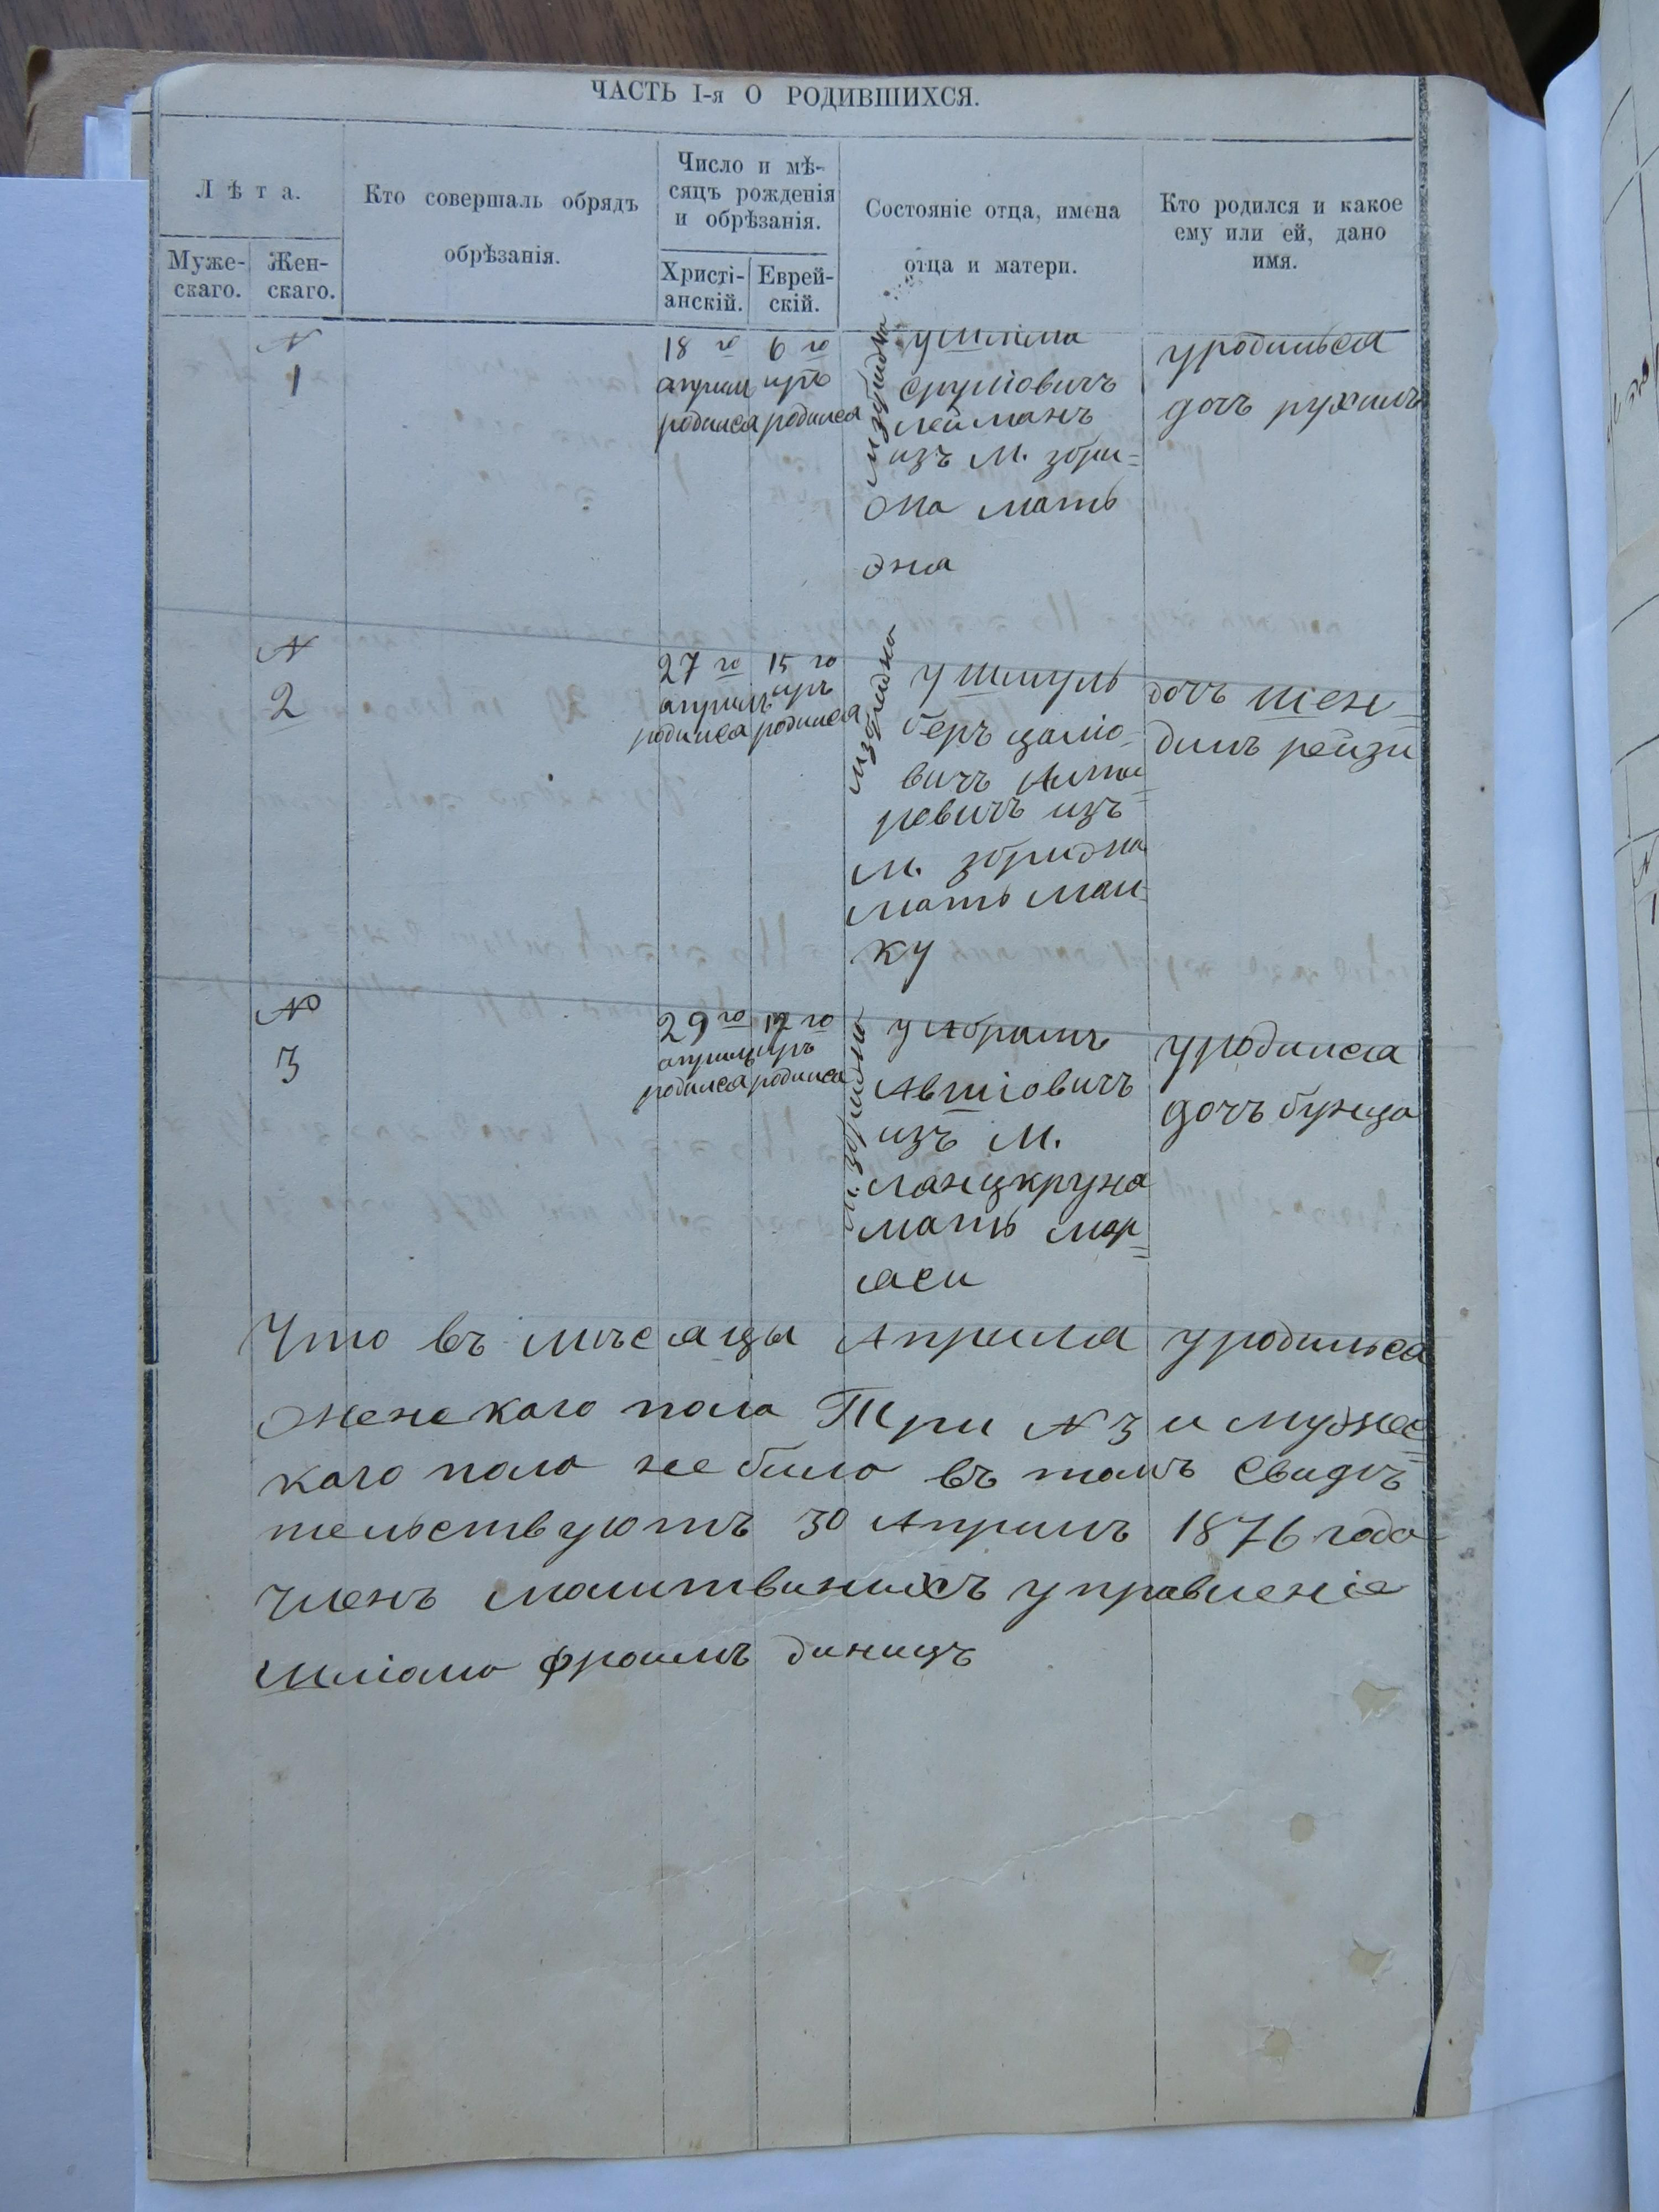 ЧАСТЬ I-я О РОДИВШИХСЯ.
Лѣта.
Муже-
скаго.
Жен-
скаго.
Кто совершалъ обрядъ
обрѣзанія.
Число и мѣ-
сяцъ рожденія
и обрѣзанія.
Христі-
анскій.
Еврей-
скій.
Состояніе отца, имена
отца и матери.
Кто родился и какое
ему или ей, дано
имя.
№
1
18 го
април
родился
6 го
иръ
родился
у Шлiома
срулiовичъ
лейманъ
изъ М. збри-
дна мать
эна
уродилься
дочъ рухилъ
№
2
27 го
априлъ
родился
15 го
иръ
родился
м збридна
у Шмуль
беръ
вичъ
ровичъ изъ
м. збридна
мать мали-
ку
дочъ шен-
дилъ рейзи
№
3
29 го
априлъ
родился
го
иръ
родился
м. збридна
у Абрамъ
Авшiовичъ
изъ М.
ланцкруна
мать мар-
яси
уродился
дочъ бунца
Что въ мѣсяцы Априля уродилься
женскаго пола Три № 3 и мужес-
каго пола небило въ томъ Свидѣ
тельствуютъ 30 Априлъ 1876 года
Членъ управленiе
Шлiома фроимъ